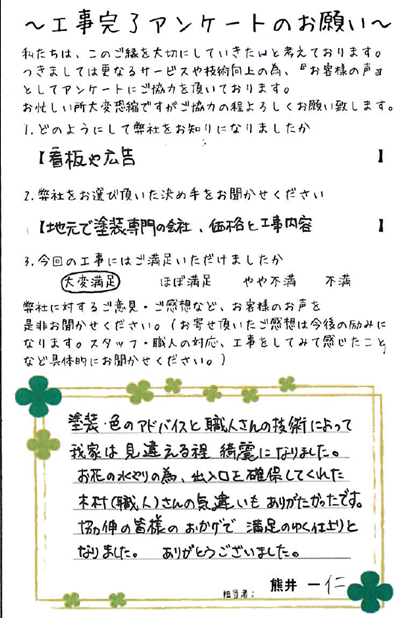 ～工事完了アンケートのお願い～
私たちは、このご縁を大切にしていきたいと考えております。
つきましては更なるサービスや技術向上の為、『お客様の声』
としてアンケートにご協力を頂いております。
お忙しい所大変恐縮ですがご協力の程よろしくお願い致します。
1.どのようにして弊社をお知りになりましたか
【看板や広告】
2.弊社をお選び頂いた決め手をお聞かせください
【地元で塗装専門の会社、価格と工事内容】
3.今回の工事にはご満足いただけましたか
大変満足 ほぼ満足 やや不満 不満
弊社に対するご意見・ご感想など、お客様のお声を
是非お聞かせください。(お寄せ頂いたご感想は今後の励みに
なります。スタッフ・職人の対応、工事をしてみて感じたこと
など具体的にお聞かせください。)
塗装・色のアドバイスと職人さんの技術によって
我家は見違える程 綺麗になりました。
お花の水やりの為、出入口を確保してくれた
木村(職人)さんの気遣いもありがたかったです。
協伸の皆様のおかげで 満足のゆく仕上りと
なりました。 ありがとうございました。
担当者; 熊井 一仁